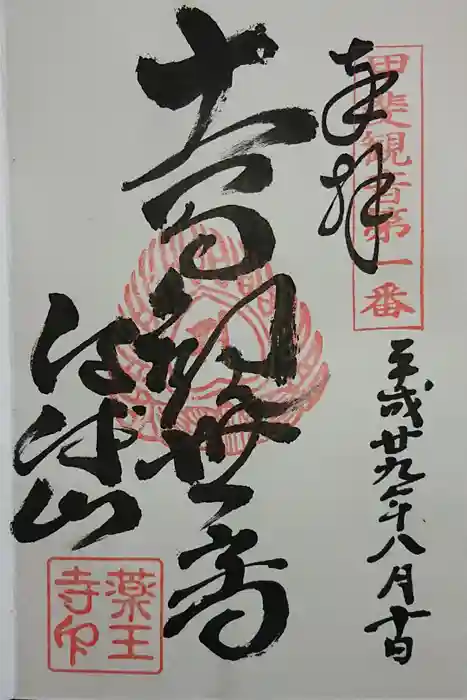 甲斐觀音第一番
奉拝
平成廿九年八月十日
十一面観世音
河浦山
薬王寺印